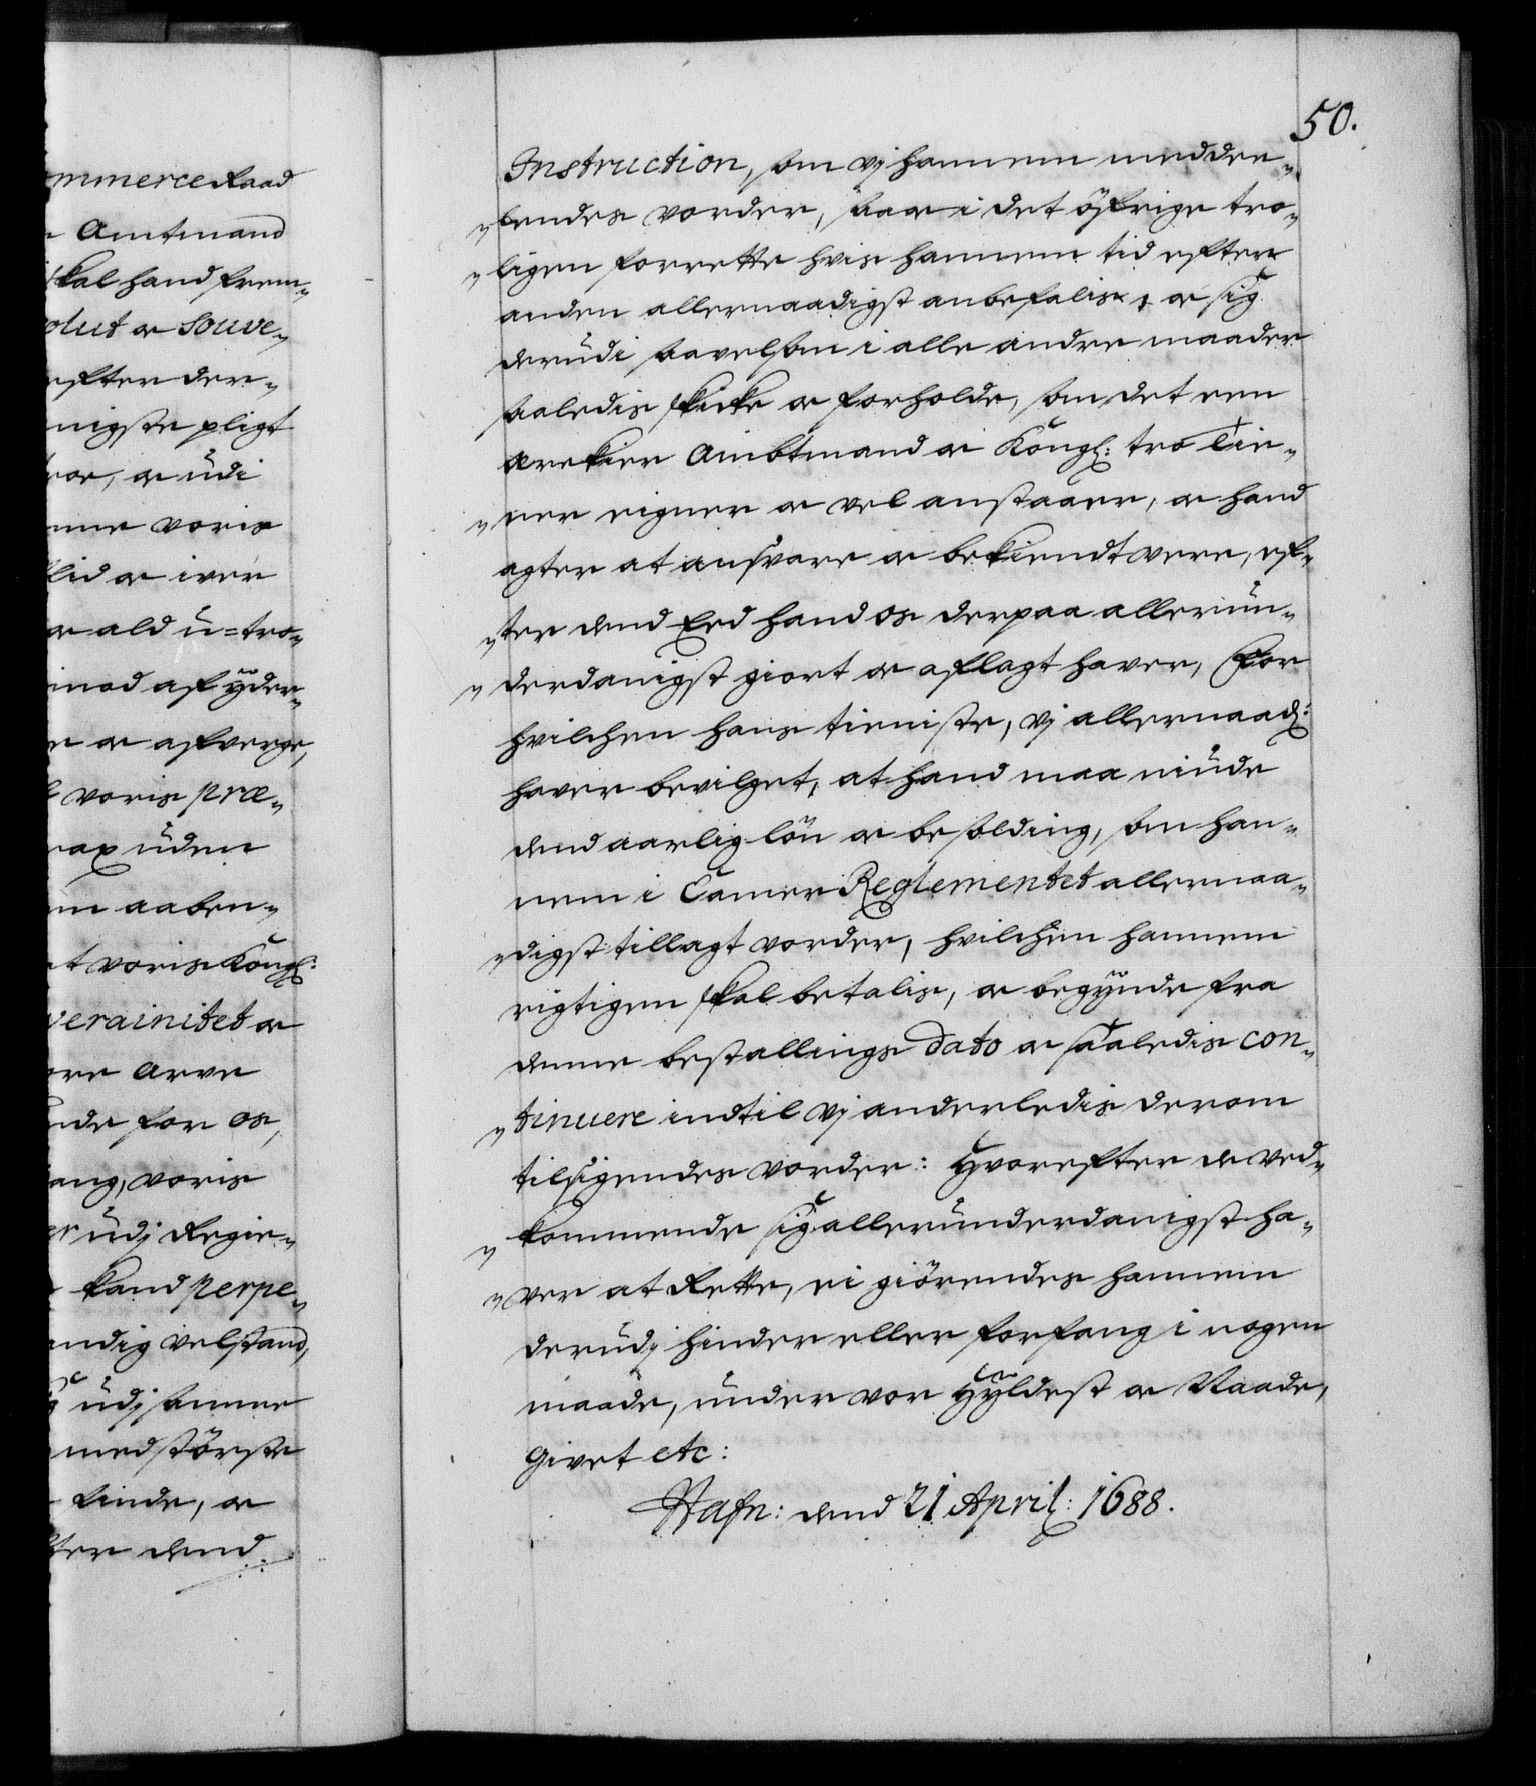 mmerce Raad
Amtmand
skal hand frem¬
olut oc Souve¬
efter der¬
nigste pligt
roe, oc udi
nne voris
flid oc iver
oc ald u=tro¬
imod af yder¬
oc afverge,
voris præ¬
uden
aaben¬
t voris Kongl:
verainitet oc
ore Arve
nde for os,
gang, voris
er udj Regie¬
kand perpe¬
andig velstand,
udj samme
med störste
finde, oc
ter dend
50.
Instruction, som vj hannem meddee¬
lendes vorder, saa oc i det öfrige tro¬
ligen forrette hvis hannem tid efter
anden allernaadigst anbefalis, oc sig
derudi saavelsom i alle andre maader
saaledis skicke oc forholde, som det een
ærekier Ambtmand oc Kongl: tro tie¬
ner eigner oc vel anstaaer, oc hand
agter at ansvare oc bekiendt være, ef¬
ter dend Eed hand os derpaa allerun¬
derdanigst giort oc aflagt haver, For
hvilchen hans tieniste, vj allernaad:
haver bevilget, at hand maa niude
dend aarlig lön oc besolding, som han¬
nem i Camer Reglementet allernaa¬
digst tillagt vorder, hvilchen hannem
rigtigen skal betalis, oc begynde fra
denne bestallings Dato oc saaledis con¬
tinuere indtil vj anderledis derom
tilsigendes vorder: Hvorefter de ved¬
kommende sig allerunderdanigst ha¬
ver at Rette, ei giörendes hannem
derudj hinder eller forfang i nogen
maade, under vor Hyldest oc Naade,
Givet etc:
Hafn: dend 21 April: 1688.